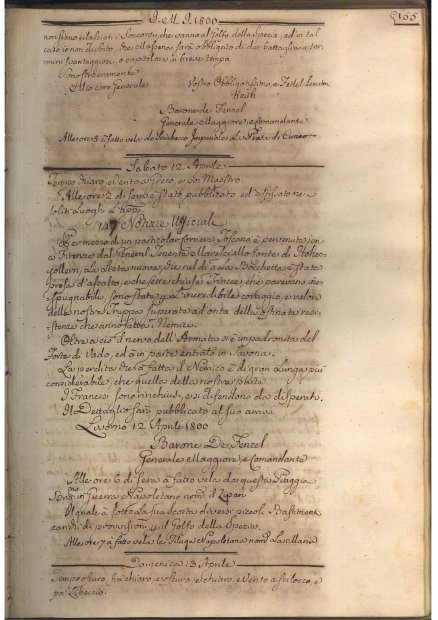 J. M. J. 1800
155
non siano rilasciati i Soccorsi, che vanno al Golfo della Spezia, ed in tal
caso io non dubito, che Massena sarà obbligato di dar battaglia a ter-
mini svantaggiosi, o capitolare in breve tempo
sono sinceramente
Mio caro Generale
Vostro Obbligatissimo, e Fedel Servitor
Keith
Barone de Fenzel
Generale Maggiore, e Comandante
Alle ore 8 à fatto vela Lo Sciabecco Imperiale La Presa di Cuneo
Sabato 12. Aprile
Tempo chiaro, e Vento a Greco, e poi Maestro.
Alle ore 2 di sera è stato pubblicato, ed affissato ne
soliti Luoghi L'appo
147 Notizie Ufficiali
Per mezzo di un particolar Corriere Toscano è pervenuta jeri
a Firenze dal General Tenente Conte di Hohen-
zollern, La lieta nuova, che nel dì 9 la Bocchetta è stata
presa d'assalto, e che sette chiuse Trincee, che parevano ine-
spugnabili sono state p incredibile coraggio, e valore
della nostra Truppa superate ad onta della ostinata resi-
stenza che anno fatta i Nemici.
Oltre a ciò il nervo dell'Armata si è impadronita del
Forte di Vado, ed è in parte entrata in Savona.
La perdita che à fatto il Nemico è di gran Lunga più
considerabile, che quella della nostra parte.
I Francesi sono rinchiusi, e si difendono da disperati.
Il Dettaglio sarà pubblicato al suo arrivo.
Livorno 12. Aprile 1800
Barone De Fenzel
Generale Maggiore, e Comandante
Alle ore 6 di sera à fatto vela da questa Piaggia
Brig. in Guerra Napoletano nom.
Il quale à sotto La sua scorta diversi piccoli Bastimenti
carichi di provvisioni p il Golfo della Spezia.
Alle ore 7 à fatto vela la Filuga Napoletana nom.
Domenica 13. Aprile
Tempo oscuro, poi chiaro, e oscuro, e Vento a Scilocco, e
poi Libeccio.